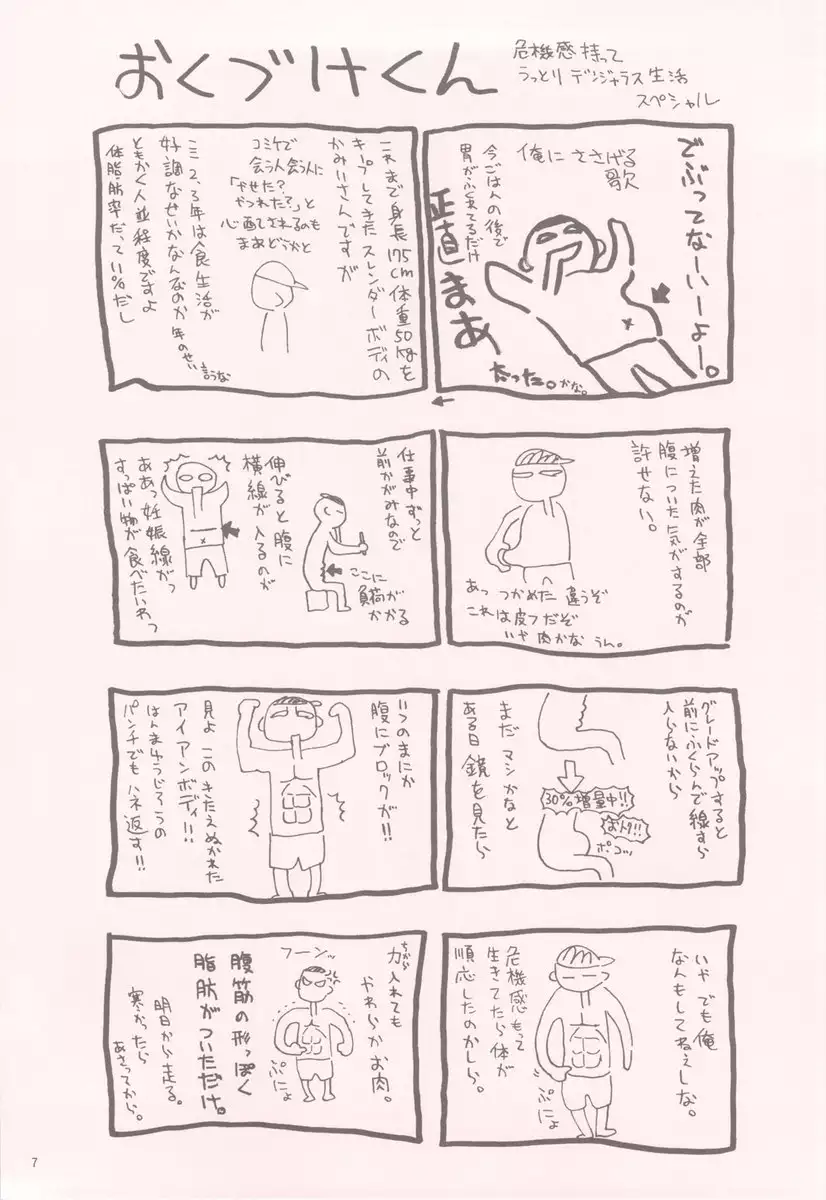 おくづけくん
危機感持って
うっとりデンジャラス生活
スペシャル
でぶってなーいーよー。
俺にささげる
歌
今ごはんの後で
胃がふくれてるだけ
正直まあ
太った。かな。
これまで身長175cm体重50kgを
キープしてきたスレンダーボディの
かみいさんですが
コミケで
会う人会う人に
「やせた?
やつれた?」と
心配されるのも
まあどうかと
ここ2、3年は食生活が
好調なせいかなんなのか年のせい
言うな
ともかく人並程度ですよ
体脂肪率だって11%だし
増えた肉が全部
腹についた気がするのが
許せない。
あっ つかめた 違うぞ
これは皮フだぞ
いや肉かな うん。
仕事中ずっと
前かがみなので
ここに
負荷が
かかる
伸びると腹に
横線が入るのが
ああっ妊娠線がっ
すっぱい物が食べたいわっ
グレードアップすると
前にふくらんで線すら
入らないから
30%増量中!!
ぽこっ
まだマシかなと
ある日鏡を見たら
いつのまにか
腹にブロックが!!
見よ このきたえぬかれた
アイアンボディ!!
はんまゆうじろうの
パンチでもハネ返す!!
いや でも俺
なんもしてねえしな。
危機感もって
生きてたら体が
順応したのかしら。
ぷにょ
ちから
力入れても
やわらかお肉。
フーンッ
ぷにょ
腹筋の形っぽく
脂肪がついただけ。
明日から走る。
寒かったら
あさってから。
7